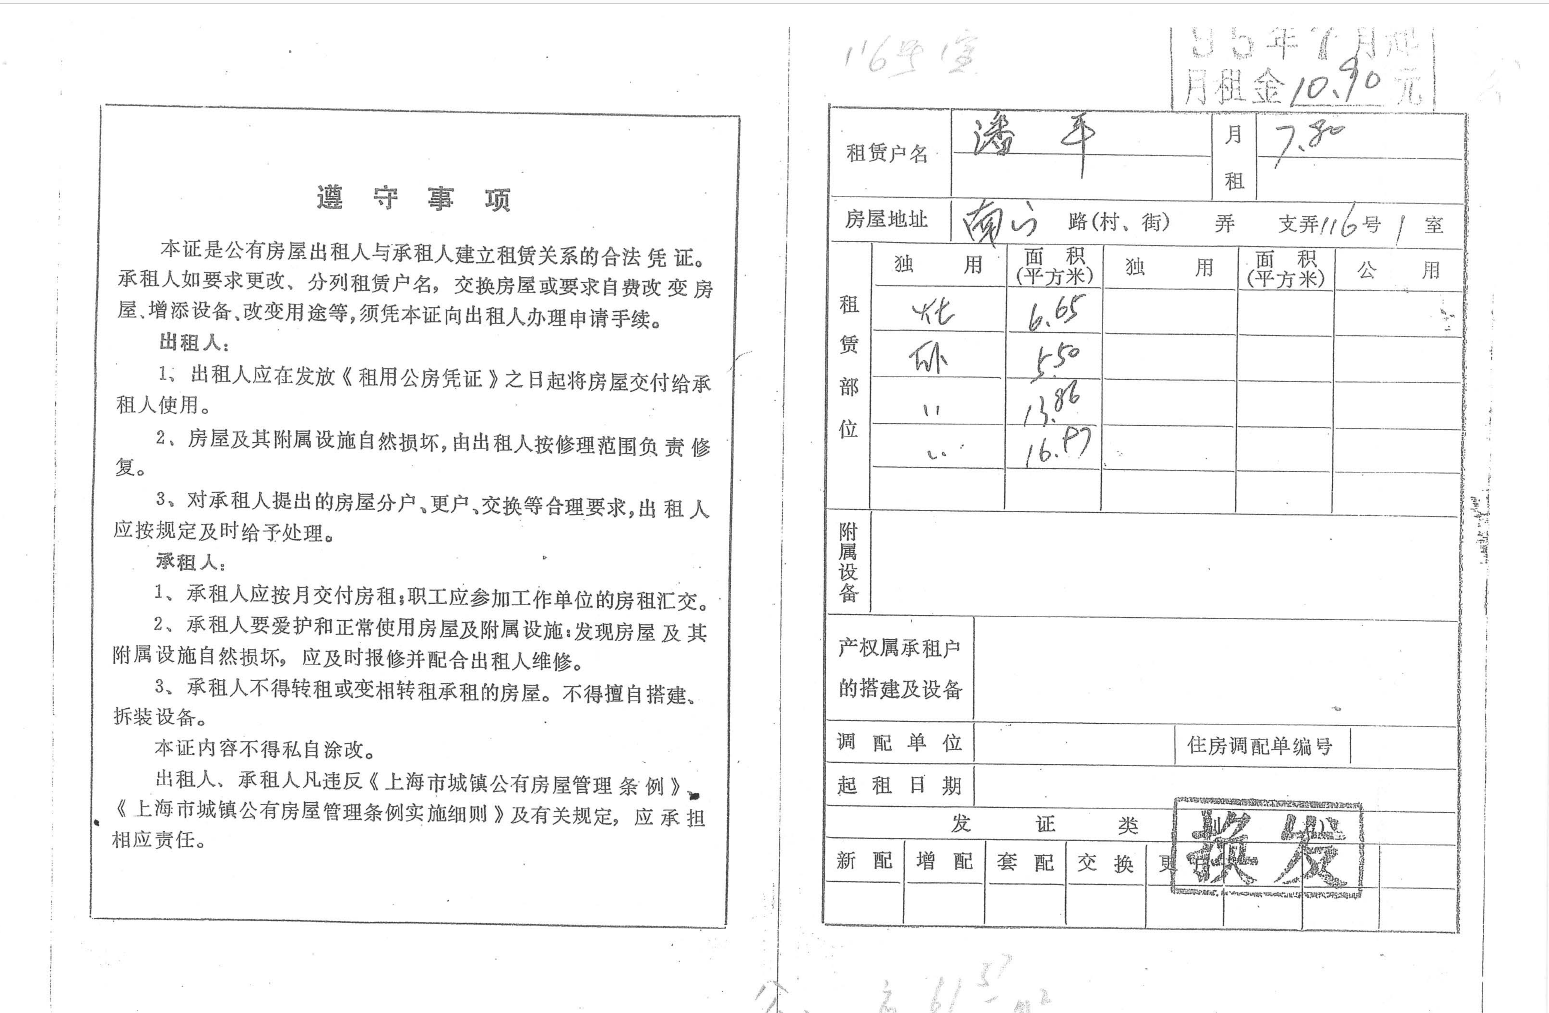 遵守事项
本证是公有房屋出租人与承租人建立租赁关系的合法凭证。
承租人如要求更改、分列租赁户名，交换房屋或要求自费改变房
屋、增添设备、改变用途等，须凭本证向出租人办理申请手续。
出租人：
1、出租人应在发放《租用公房凭证》之日起将房屋交付给承
租人使用。
2、房屋及其附属设施自然损坏，由出租人按修理范围负责修
复。
3、对承租人提出的房屋分户、更户、交换等合理要求，出租人
应按规定及时给予处理。
承租人：
1、承租人应按月交付房租；职工应参加工作单位的房租汇交。
2、承租人要爱护和正常使用房屋及附属设施；发现房屋及其
附属设施自然损坏，应及时报修并配合出租人维修。
3、承租人不得转租或变相转租承租的房屋。不得擅自搭建、
拆装设备。
本证内容不得私自涂改。
出租人、承租人凡违反《上海市城镇公有房屋管理条例》、
《上海市城镇公有房屋管理条例实施细则》及有关规定，应承担
相应责任。
116号1室
年 月
月租金10.90元
租赁户名 潘平 月租 7.80
房屋地址 南 路(村、街) 弄 支弄116号1室
租赁部位 独用 面积(平方米) 独用 面积(平方米) 公用
6.65
5.50
〃 13.86
〃 16.97
附属设备
产权属承租户
的搭建及设备
调配单位 住房调配单编号
起租日期
发证类别
新配 增配 套配 交换 更
换发